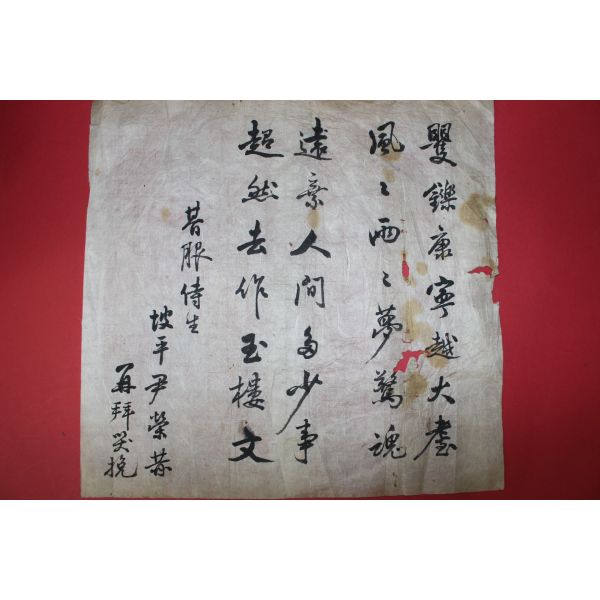 矍鑠康寧越大耋
風〻雨〻夢驚魂
遠棄人間多少事
超然去作玉樓文
朞服侍生
坡平尹榮
再拜哭挽